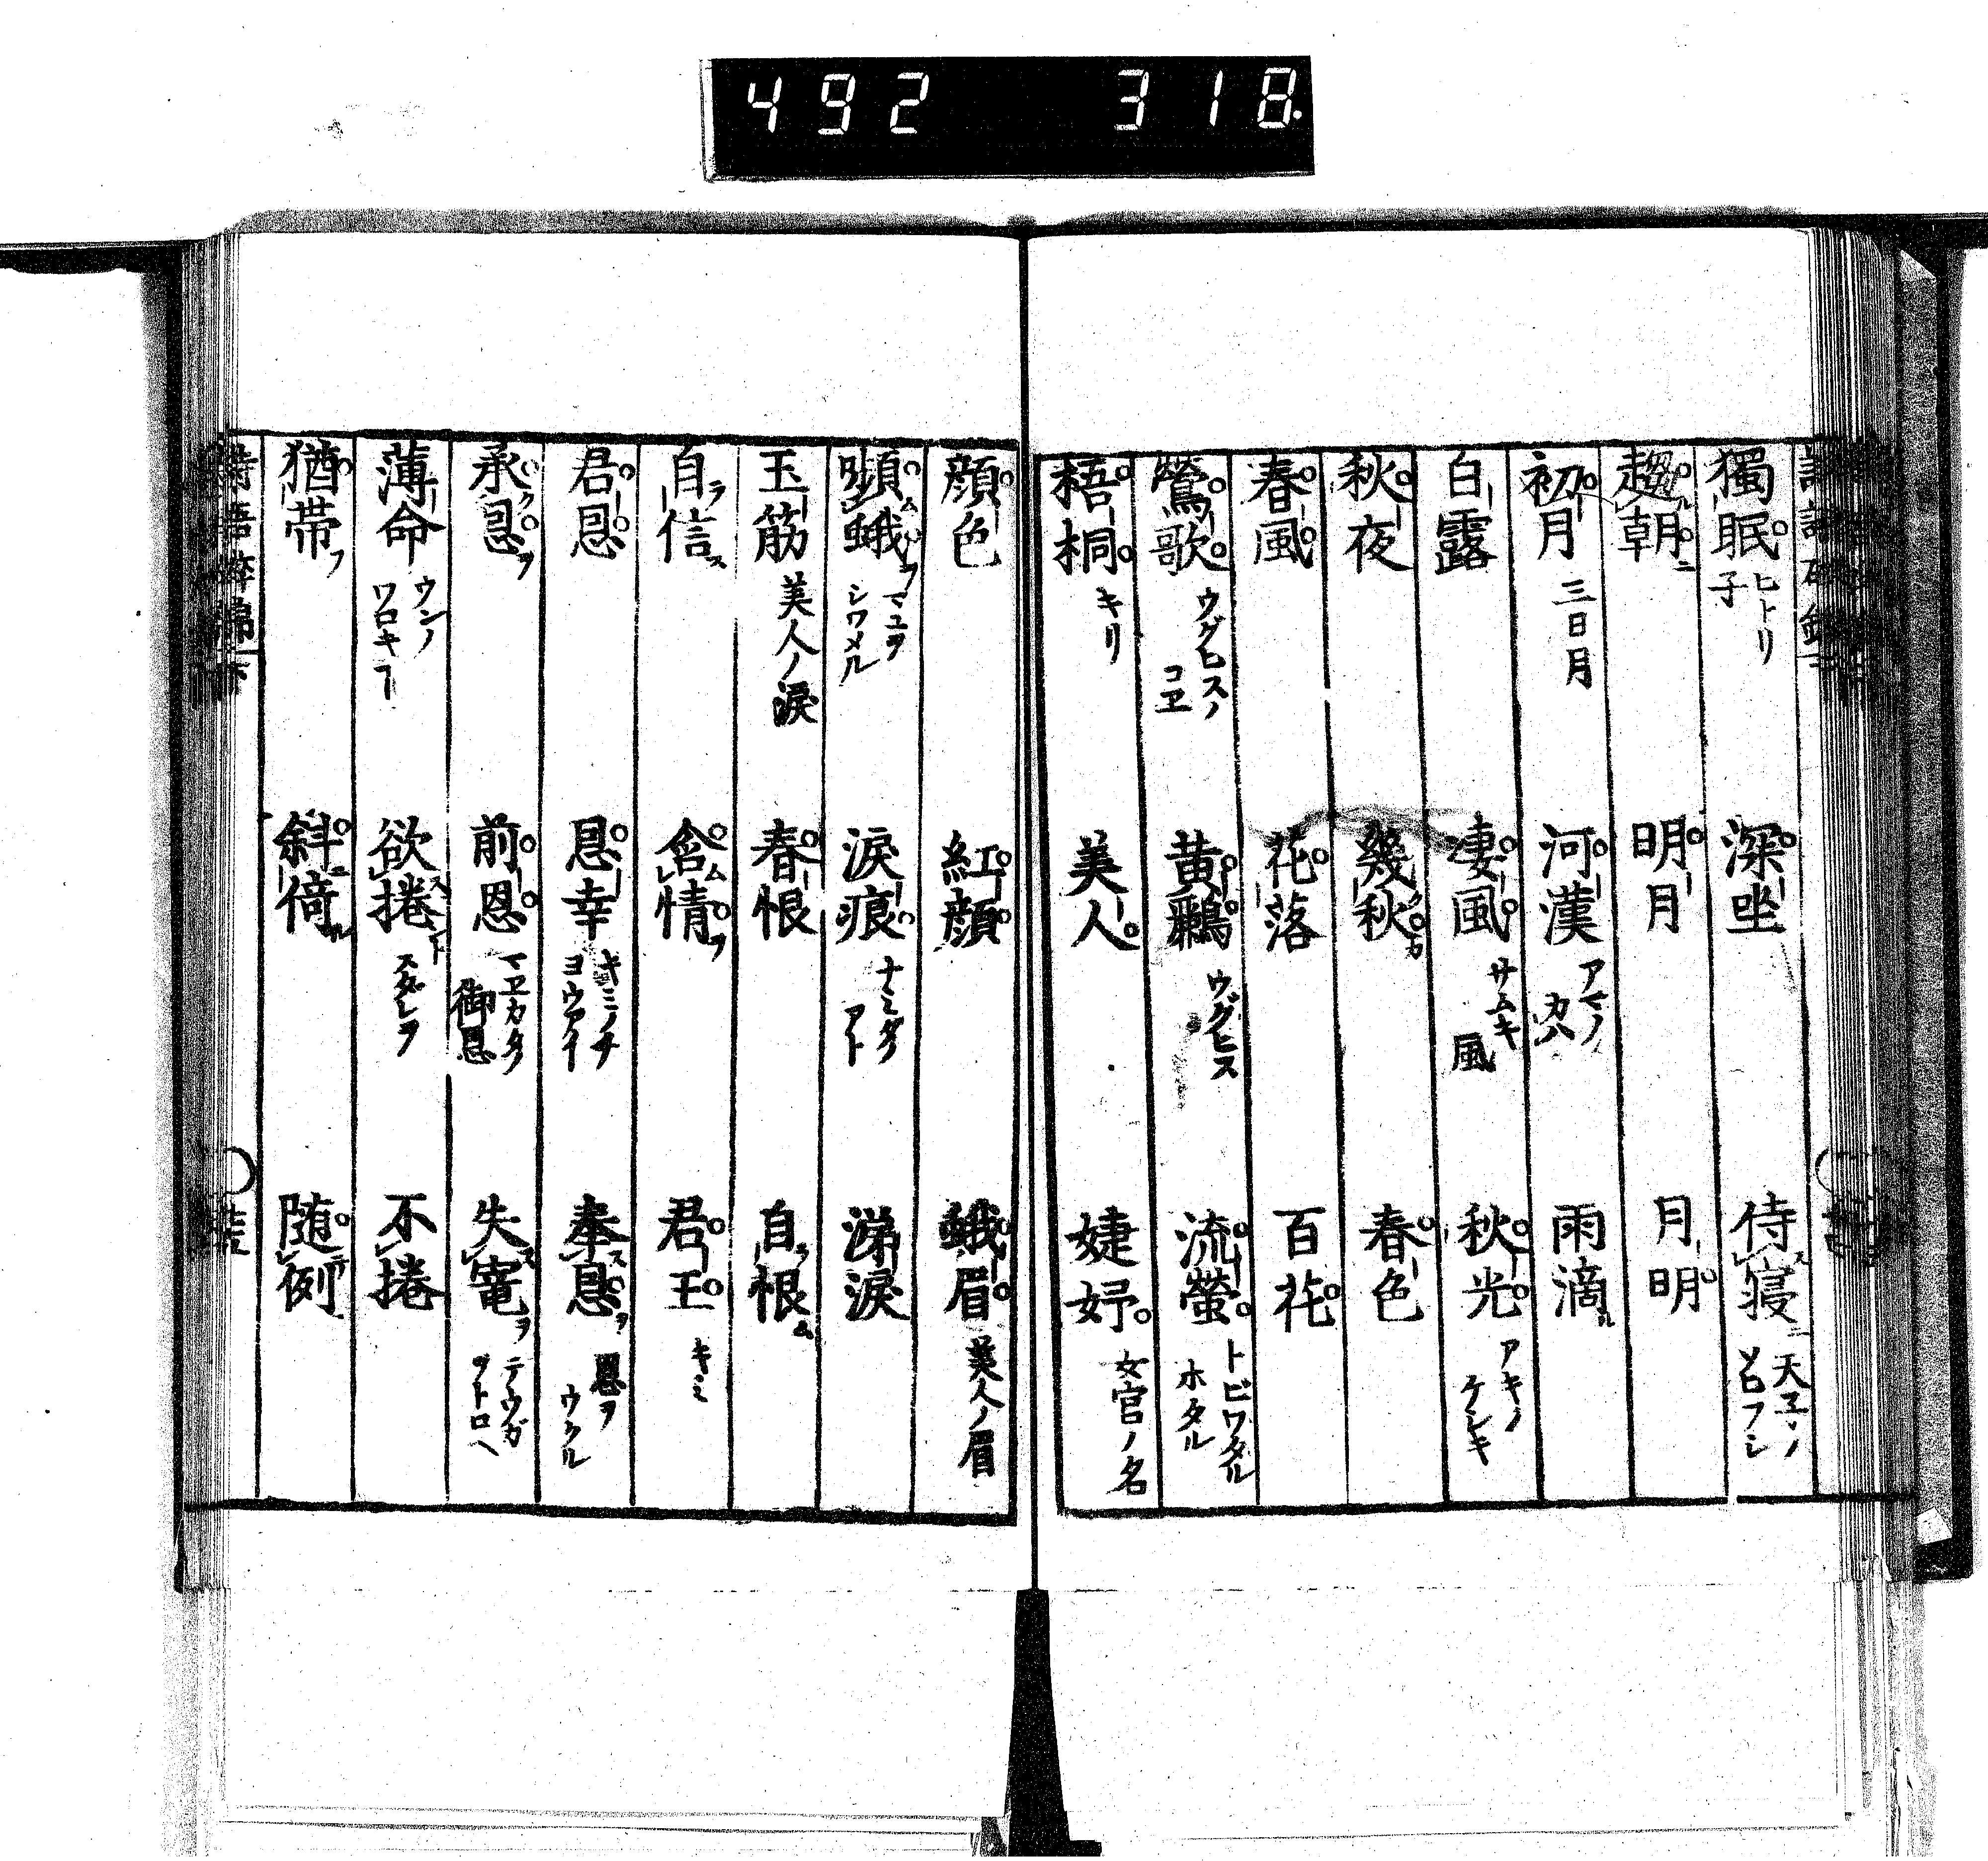 492 318
獨眠 ヒトリ子 深坐 侍寝 天子ノソロフシ
趨朝 明月 月明
初月 三日月 河漢 アマノカハ 雨滴
白露 凄風 サムキ風 秋光 アキノケシキ
秋夜 幾秋 春色
春風 花落 百花
鶯歌 ウグヒスノコヱ 黄鸝 ウグヒス 流螢 トビワタルホタル
梧桐 キリ 美人 婕妤 女官ノ名
顔色 紅顔 蛾眉 美人ノ眉
顰蛾 マユヲシワメル 淚痕 ナミダノアト 涕淚
玉筋 美人ノ淚 春恨 自恨
自信 含情 君王 キミ
君恩 恩幸 キミノチヨウアイ 奉恩 恩ヲウクル
承恩 前恩 マヱカタノ御恩 失寵 テウガヲトロヘ
薄命 ウンノワロキヿ 欲捲 スダレヲ 不捲
猶帯 斜倚 随例
詩語砕錦 下